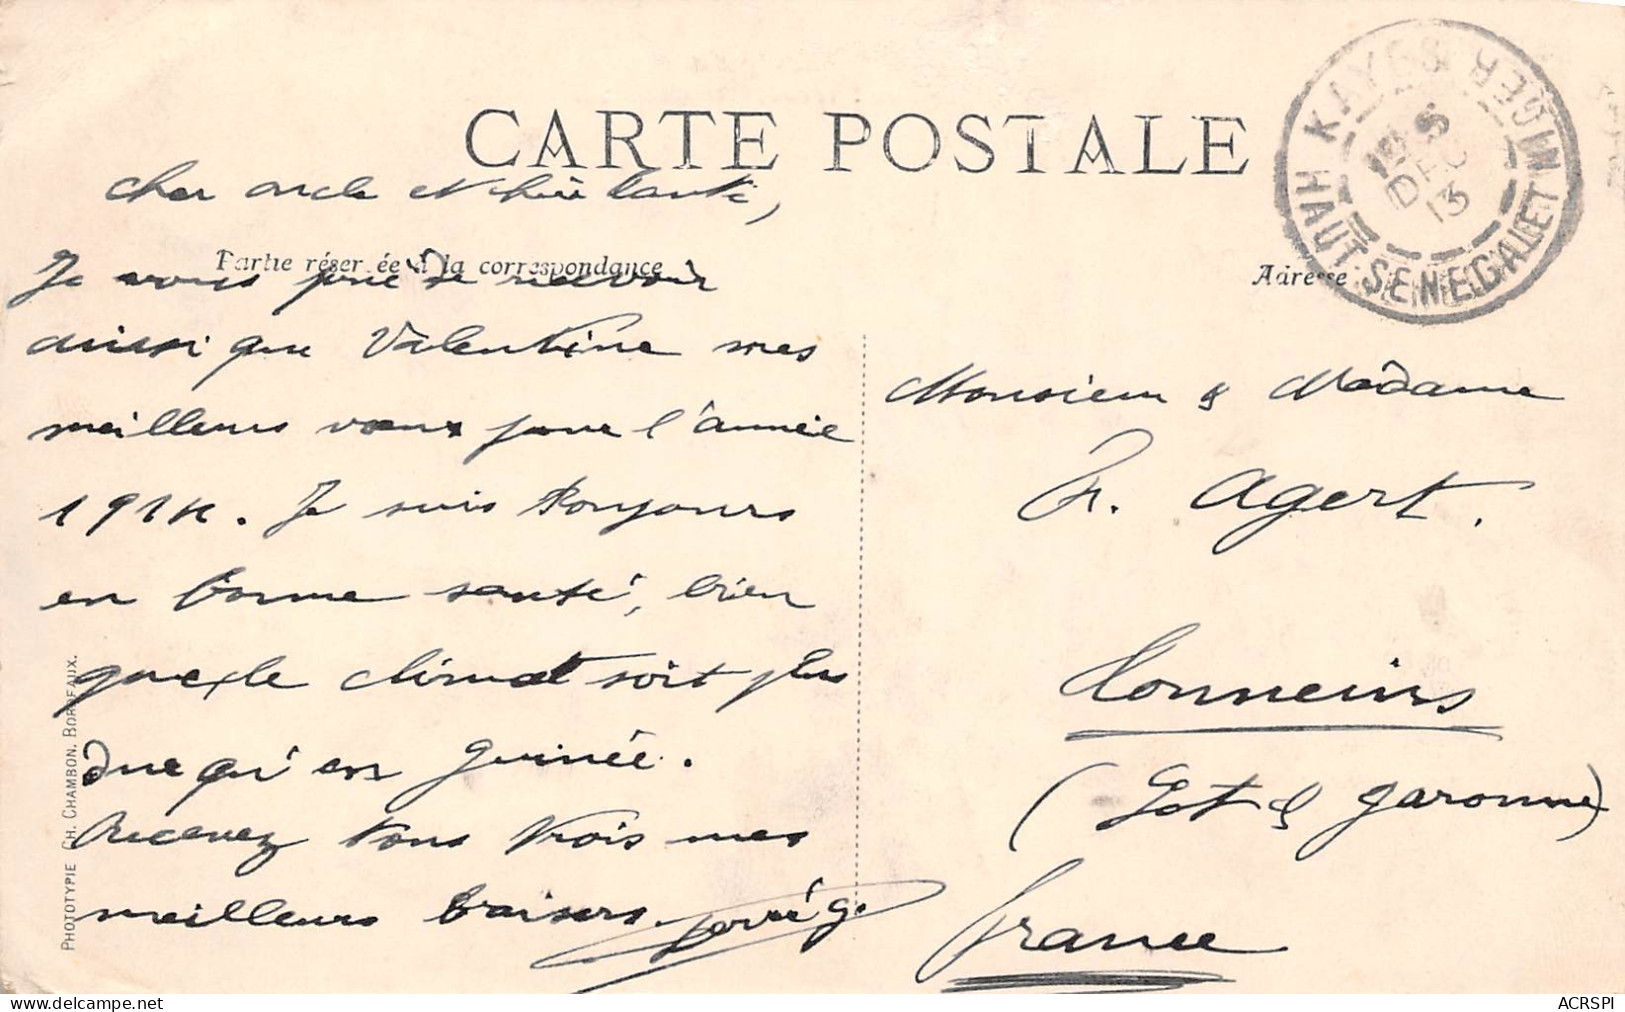 CARTE POSTALE
Cher oncle et chère tante,
Partie réservée à la correspondance
Je vous prie de recevoir
aussi que Valentine mes
meilleurs voeux pour l'année
1914. Je suis toujours
en bonne santé, bien
que le climat soit plus
dur qu'en Guinée.
Recevez tous trois mes
meilleurs baisers.
PHOTOTYPIE CH. CHAMBON. BORDEAUX.
KAYES
HAUT SENEGAL ET NIGER
DEC
13
Adresse
Monsieur & Madame
Agert.
Tonneins
(Lot & Garonne)
France
delcampe.net
ACRSPI